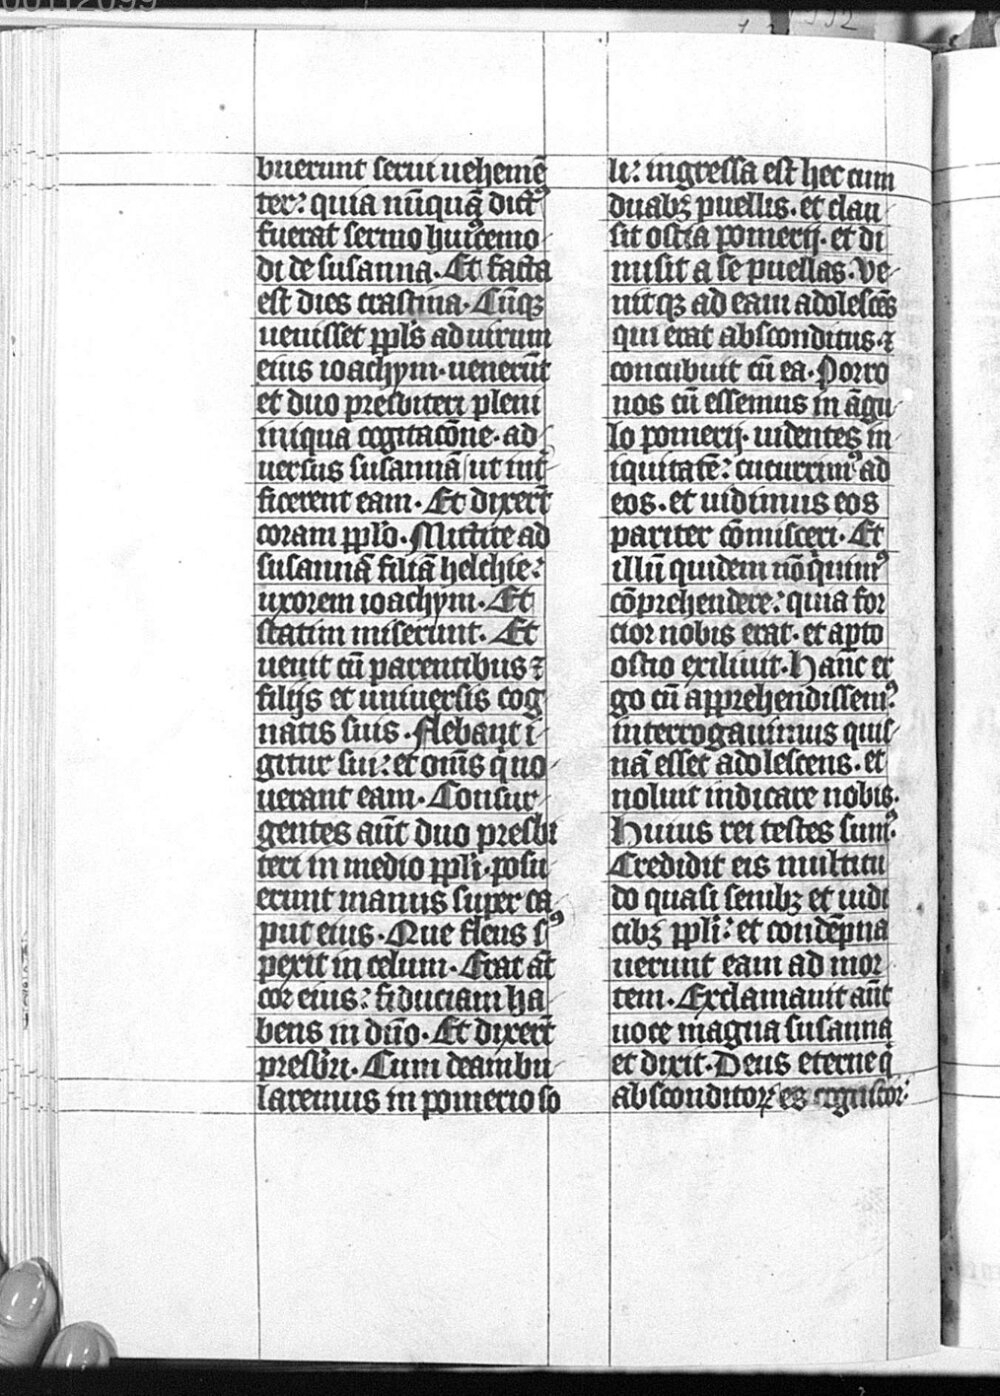 buerunt serui uehemē
ter: quia nūquā dictꝰ
fuerat sermo huiꝰcemo
di de susanna. Et facta
est dies crastina. Cūqꝫ
uenisset ppl̄s ad uirum
eius ioachym. uenerūt
et duo presbiteri pleni
iniqua cogitacōne. ad
uersus susannā ut int̄
ficerent eam. Et dixerūt
coram pplō. Mittite ad
susannā filiā helchie:
uxorem ioachym. Et
statim miserunt. Et
uenit cū parentibus ⁊
filijs et uniuersis cog
natis suis. Flebant i
gitur sui: et om̄s q̇ no
uerant eam. Consur
gentes aūt duo presbi
teri in medio ppl̄i. posu
erunt manus super ca
put eius. Que flens sꝰ
pexit in celum. Erat aūt
cor eius: fiduciam ha
bens in dn̄o. Et dixerūt
presbr̄i. Cum deambu
laremus in pomerio so
li: ingressa est hec cum
duabꝫ puellis. et clau
sit ostia pomerij. et di
misit a se puellas. Ve
nitqꝫ ad eam adolescēs
qui erat absconditus. ⁊
concubuit cū ea. Porro
nos cū essemus in āgu
lo pomerij. uidentes in
iquitatē: cucurrimꝰ ad
eos. et uidimus eos
pariter cōmisceri. Et
illū quidem nō quimꝰ
cōprehendere: quia for
cior nobis erat. et apto
ostio exiliuit. Hanc er
go cū apprehendissemꝰ.
interrogauimus quis
nā esset adolescens. et
noluit indicare nobis.
Huius rei testes sumꝰ.
Credidit eis multitu
do quasi senibꝫ et iudi
cibꝫ ppl̄i: et condēpna
uerunt eam ad mor
tem. Exclamauit aūt
uoce magna susanna
et dixit. Deus eterne q̇
absconditoꝝ es cognitor: